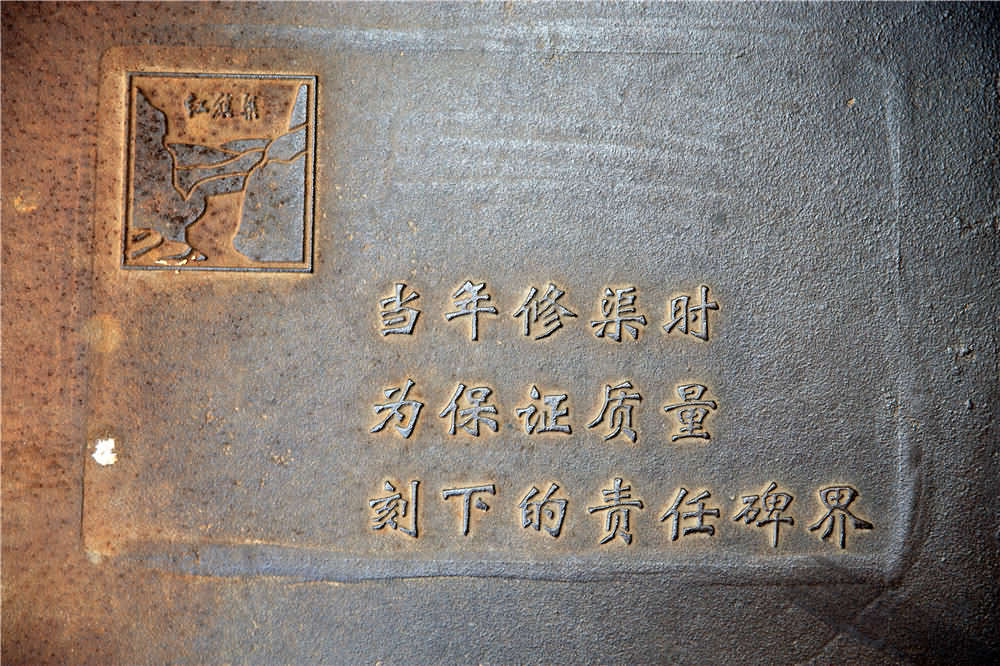 红旗渠
当年修渠时
为保证质量
刻下的责任碑界